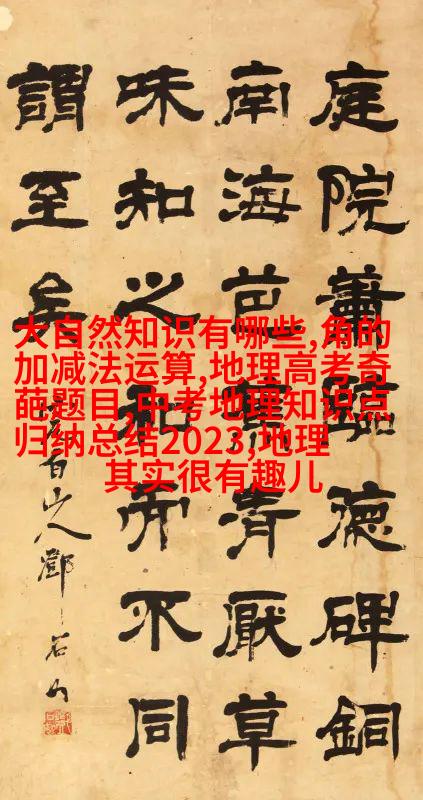 大自然知识有哪些,角的
加减法运算,地理高考奇
葩题目,中考地理知识点
归纳总结2023,地理
其实很有趣儿
庭院蕭德碑銅
南海芭青厭草
味知之和而不同
謂至矣
白山人鄧石如